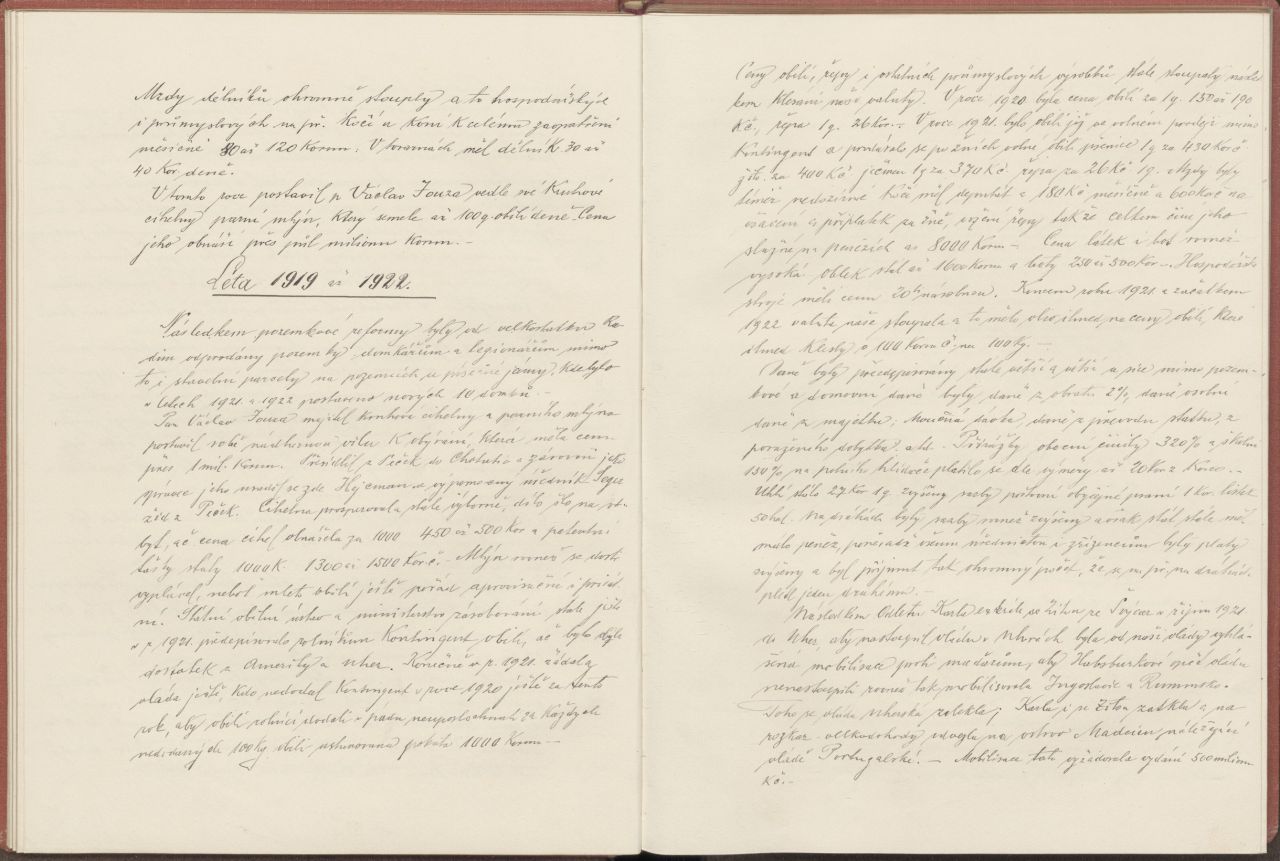 Mzdy dělníků ohromně stouply a to hospodářských
i průmyslových na př. Kočí u koní k celému zaopatření
měsíčně 80 až 120 Korun. V továrnách měl dělník 30 až
40 Kor. denně.
V tomto roce postavil p. Václav Fouza vedle své Kruhové
cihelny parní mlýn, který semele až 100 q. obilí denně. Cena
jeho obnáší přes půl milionu Korun. —
Léta 1919 až 1922.
Následkem pozemkové reformy byly od velkostatku Ra-
dim odprodány pozemky domkářům a legionářům mimo
to i stavební parcely na pozemcích u písečné jámy, kde bylo
v letech 1921 a 1922 postaveno nových 10 domků. —
Pan Václav Fouza majitel kruhové cihelny a parního mlýna
postavil sobě nádhernou vilu k obývání, která měla cenu
přes 1 mil. Korun. Přesídlil z Peček do Chotutic a zároveň jeho
správce jeho usadil se zde Hejcman a výpomocný úředník
z Peček. Cihelna prosperovala stále výborně, dílo šlo na od-
byt, ač cena cihel obnášela za 1000 450 až 500 Kor a patentní
tašky stály 1000 k. 1300 až 1500 Kor č. Mlýn rovněž se dosti
vyplácel, neboť mletí obilí ještě pořád aprovisační i
ní. Státní obilní ústav a ministerstvo zásobování stále ještě
v r. 1921. předepisovalo rolníkům Kontingent obilí, ač bylo
dostatek z Ameriky a Uher. Konečně v r. 1921. žádala
vláda ještě, kdo nedodal Kontingent v roce 1920 ještě za tento
rok, aby obilí rolníci dodali v pádu neuposlechnutí za každých
nedodaných 100 kg. obilí ustanovena pokuta 1000 Korun —
Ceny obilí, řepy i ostatních průmyslových výrobků stále stoupaly násle
kem klesání naší valuty. V roce 1920 byla cena obilí za 1 q. 150 až 190
Kč., řepa 1 q. 26 Kor. — V roce 1921. bylo obilí již ve volném prodeji mimo
Kontingent a prodávalo se po žních volné obilí pšenice 1 q za 430 Kor č
žito za 400 Kč ječmen 1 q za 370 Kč řepa za 26 Kč 1 q. Mzdy byly
téměř nedozírné Kočí měl deputát a 180 Kč měsíčně a 600 Kč na
ošacení a příplatek za žně, vození řepy takže celkem činí jeho
služné na penězích as 8000 Korun — Cena látek i bot rovněž
vysoká oblek stál až 1600 Korun a boty 250 až 500 Kor. — Hospodářské
stroje měli cenu 20ti násobnou. Koncem roku 1921. a začátkem
1922 valuta naše stoupala a to mělo vliv ihned na ceny obilí, které
ihned klesly o 100 Korun č. na 100 kg. —
Daně byly předepisovány stále větší a větší a sice mimo pozem-
kové a domovní daně byly daně z obratu 2%, daně osobní
daně z majetku, Moučná dávka, daně z převodu statku, z
poraženého dobytka atd. Přirážky obecní činily 320% a školní
150%, na polního hlídače platilo se dle výměry až 20 Kor z Korce. —
Uhlí stálo 27 Kor 1 q. zvýšeny sazby poštovní obyčejné psaní 1 Kor. lístek
50 hal. Na drahách byly sazby rovněž zvýšeny avšak stát stále měl
málo peněz, poněvadž všem úředníkům i zřízencům byly platy
zvýšeny a byl přijmut tak ohromný počet, že se na př. na drahách
pletl jeden druhému. —
Následkem Odletu Karla exkrále se Zitou ze Švýcar v říjnu 1921
do Uher, aby nastoupil vládu v Uhrách byla od naší vlády vyhlá-
šena mobilisace proti maďarům, aby Habsburkové opět vládu
nenastoupili rovněž tak mobilisovala Jugoslavie a Rumunsko.
Toho se vláda Uherská zalekla, Karla i se Zitou zatkla a na
rozkaz velkodohody odvezla na ostrov Madeiru náležející
vládě Portugalské. — Mobilisace tato vyžádovala vydání 500 milionu
Kč. —